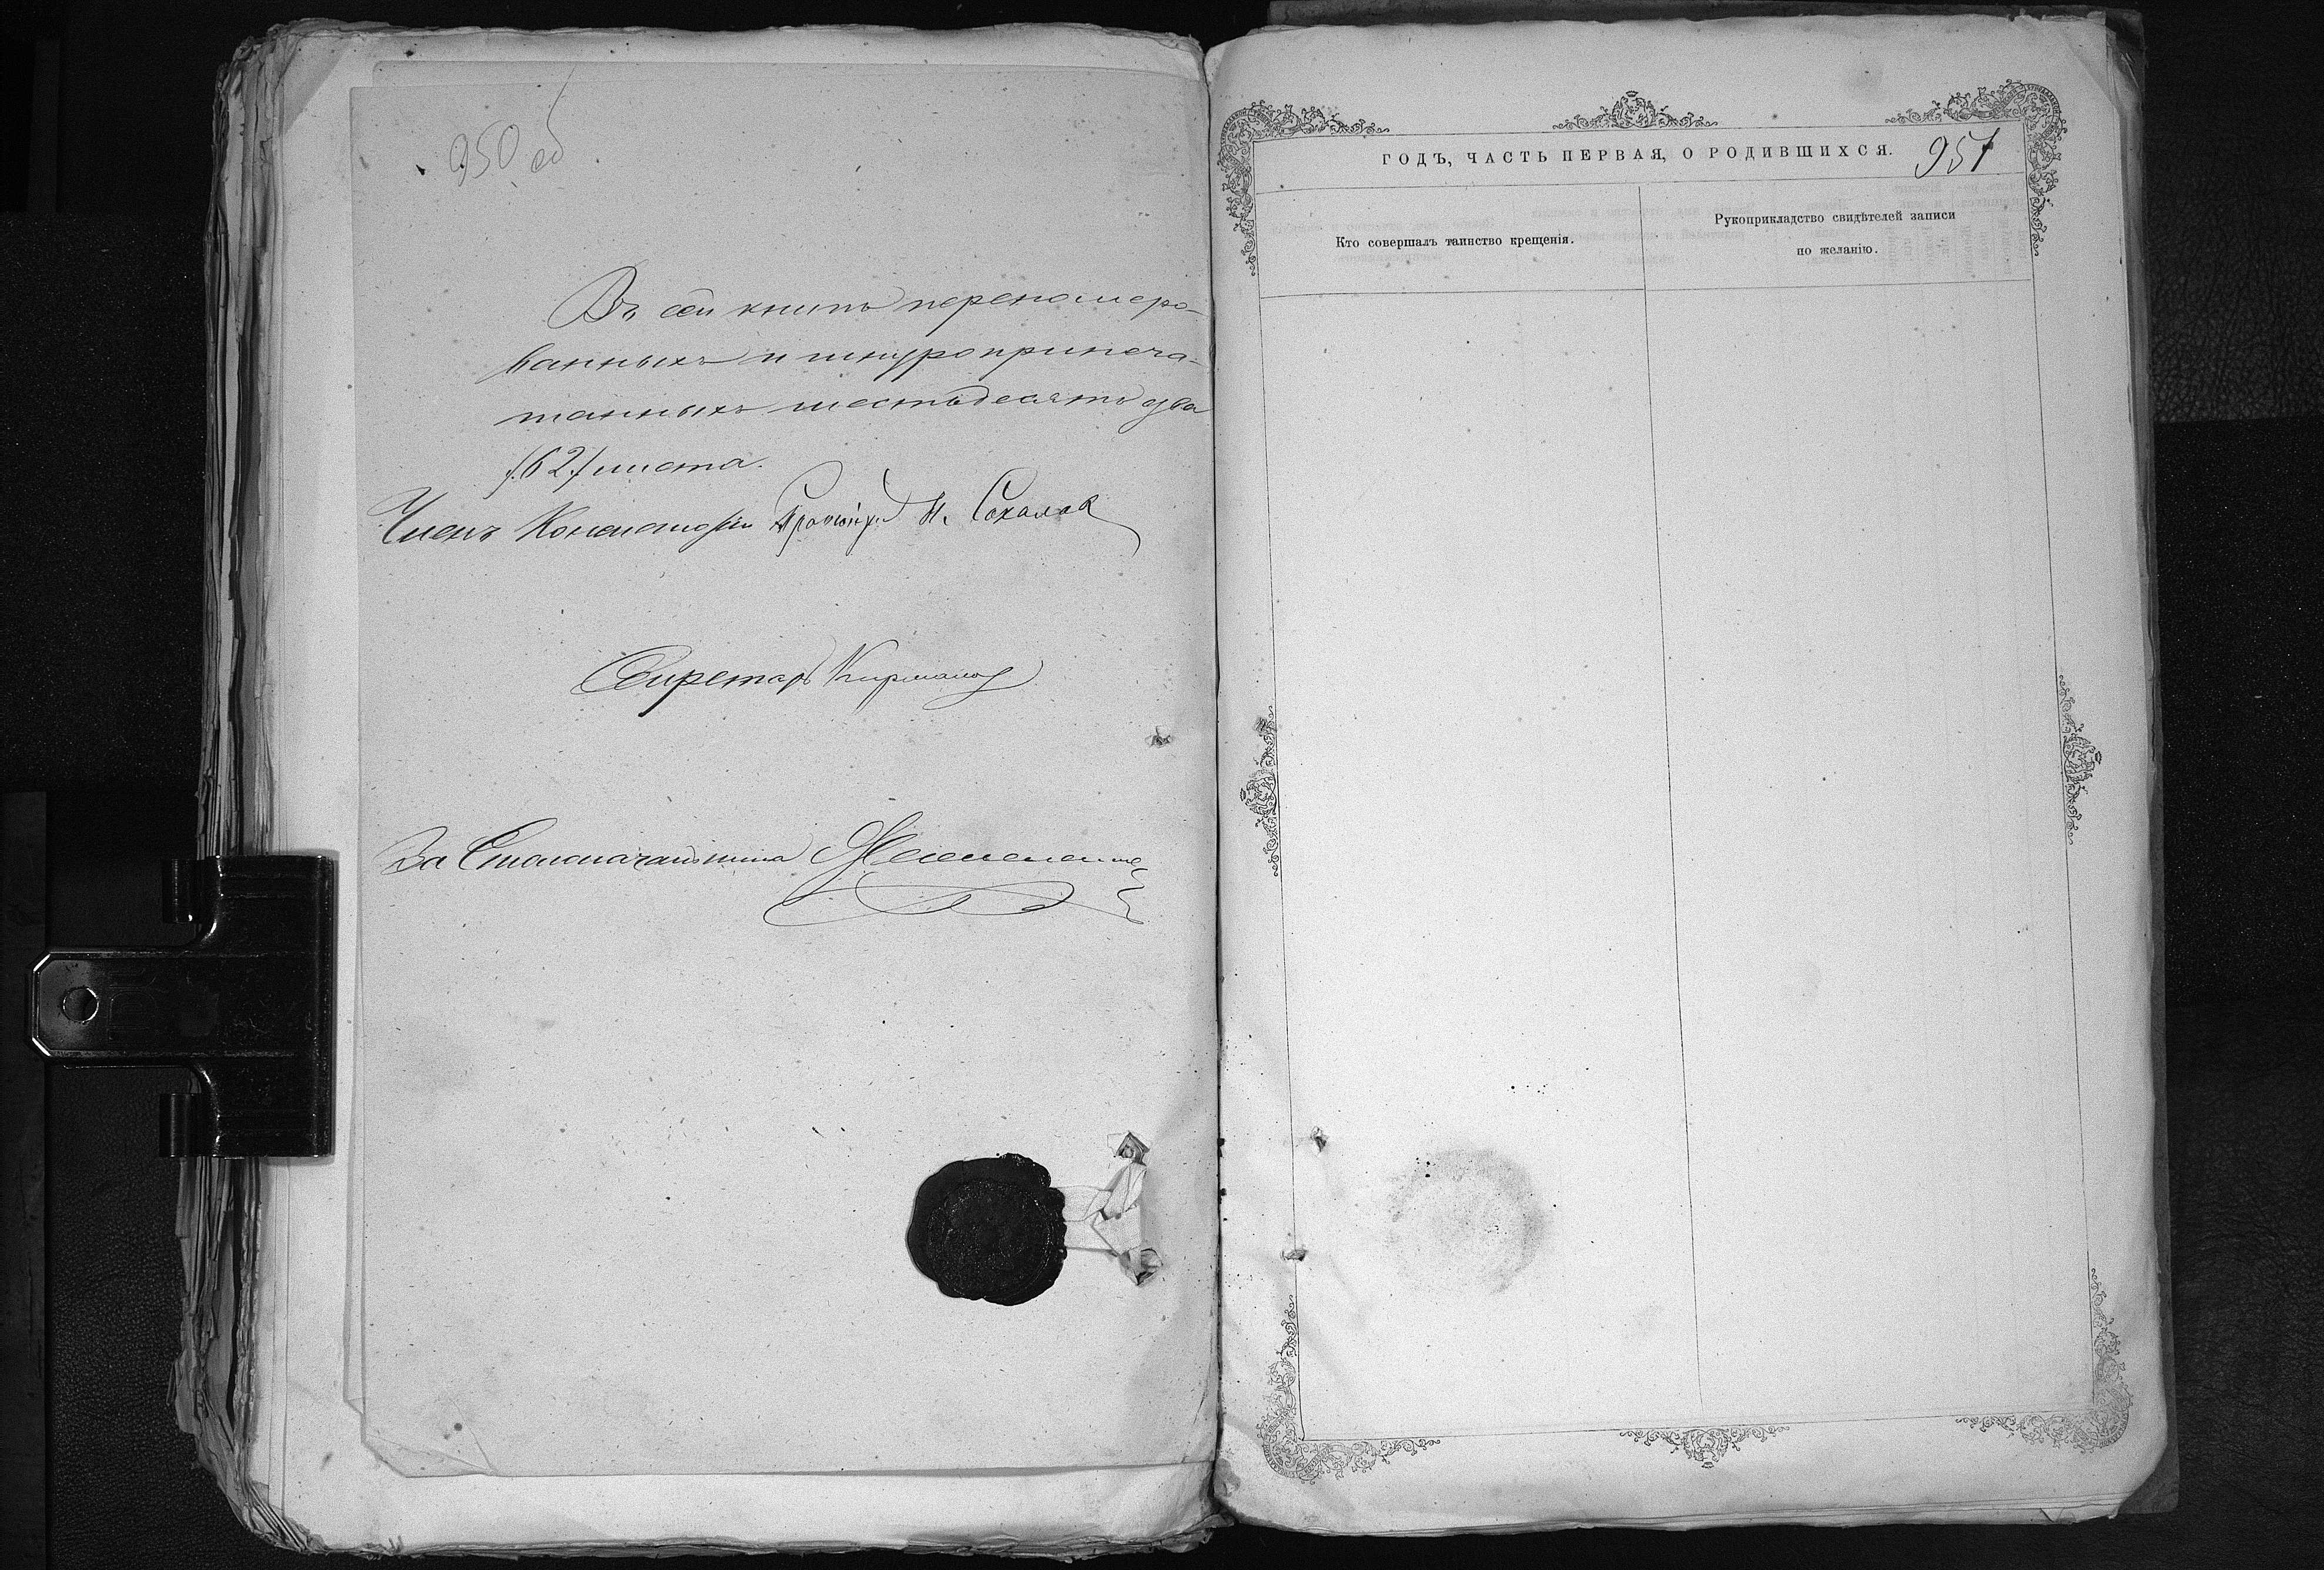 950 об
Въ сей книгѣ перенумеро-
ванныхъ и шнуроприпеча-
танныхъ шестьдесятъ два
/62/ листа.
Членъ Консисторіи Н. Соколов
Секретарь
За Столоначальника
ГОДЪ, ЧАСТЬ ПЕРВАЯ, О РОДИВШИХСЯ. 951
Кто совершалъ таинство крещенія.
Рукоприкладство свидѣтелей записи
по желанію.